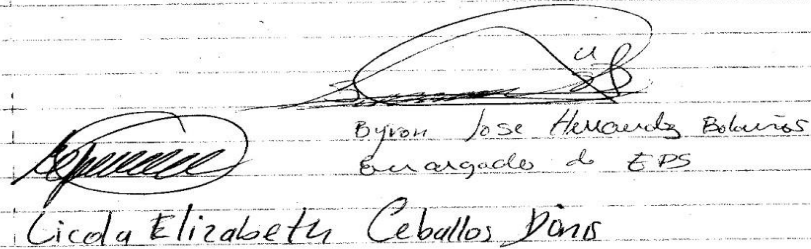 Byron Jose Hernandz Bolaños
Encargado de EPS
Licda Elizabeth Ceballos Donis